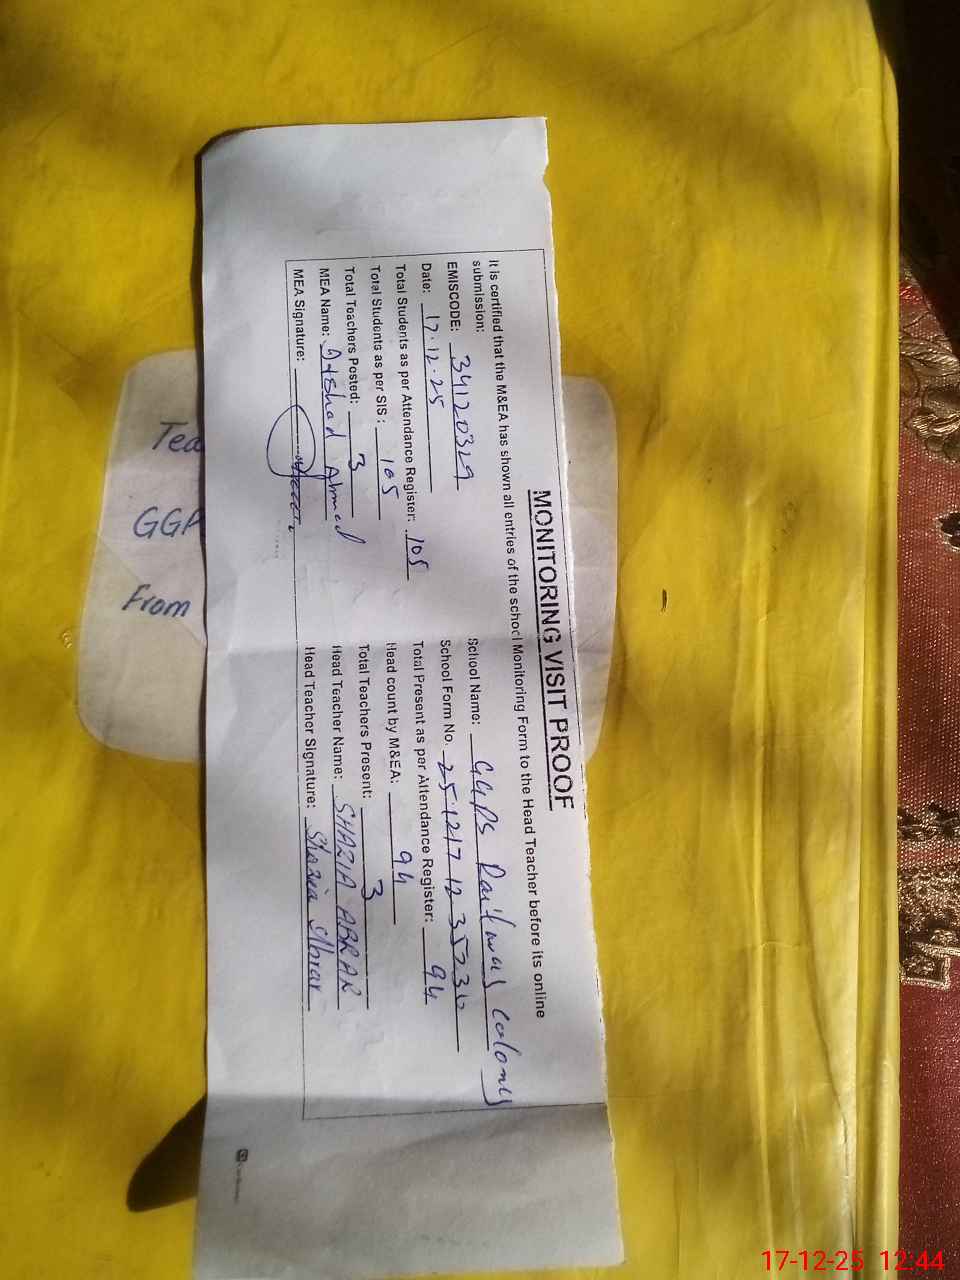 MONITORING VISIT PROOF
It is certified that the M&EA has shown all entries of the school Monitoring Form to the Head Teacher before its online
submission:
EMISCODE: 34120329
School Name: GGPS Railway Colony
Date: 17.12.25
School Form No. 25121712353
Total Students as per Attendance Register: 105
Total Present as per Attendance Register: 94
Total Students as per SIS: 105
Head count by M&EA: 94
Total Teachers Posted: 3
Total Teachers Present: 3
MEA Name: Arshad Ahmed
Head Teacher Name: SHAZIA ABRAR
MEA Signature:
Head Teacher Signature: Shazia Abrar
Tea
GGP
From
17-12-25 12:44